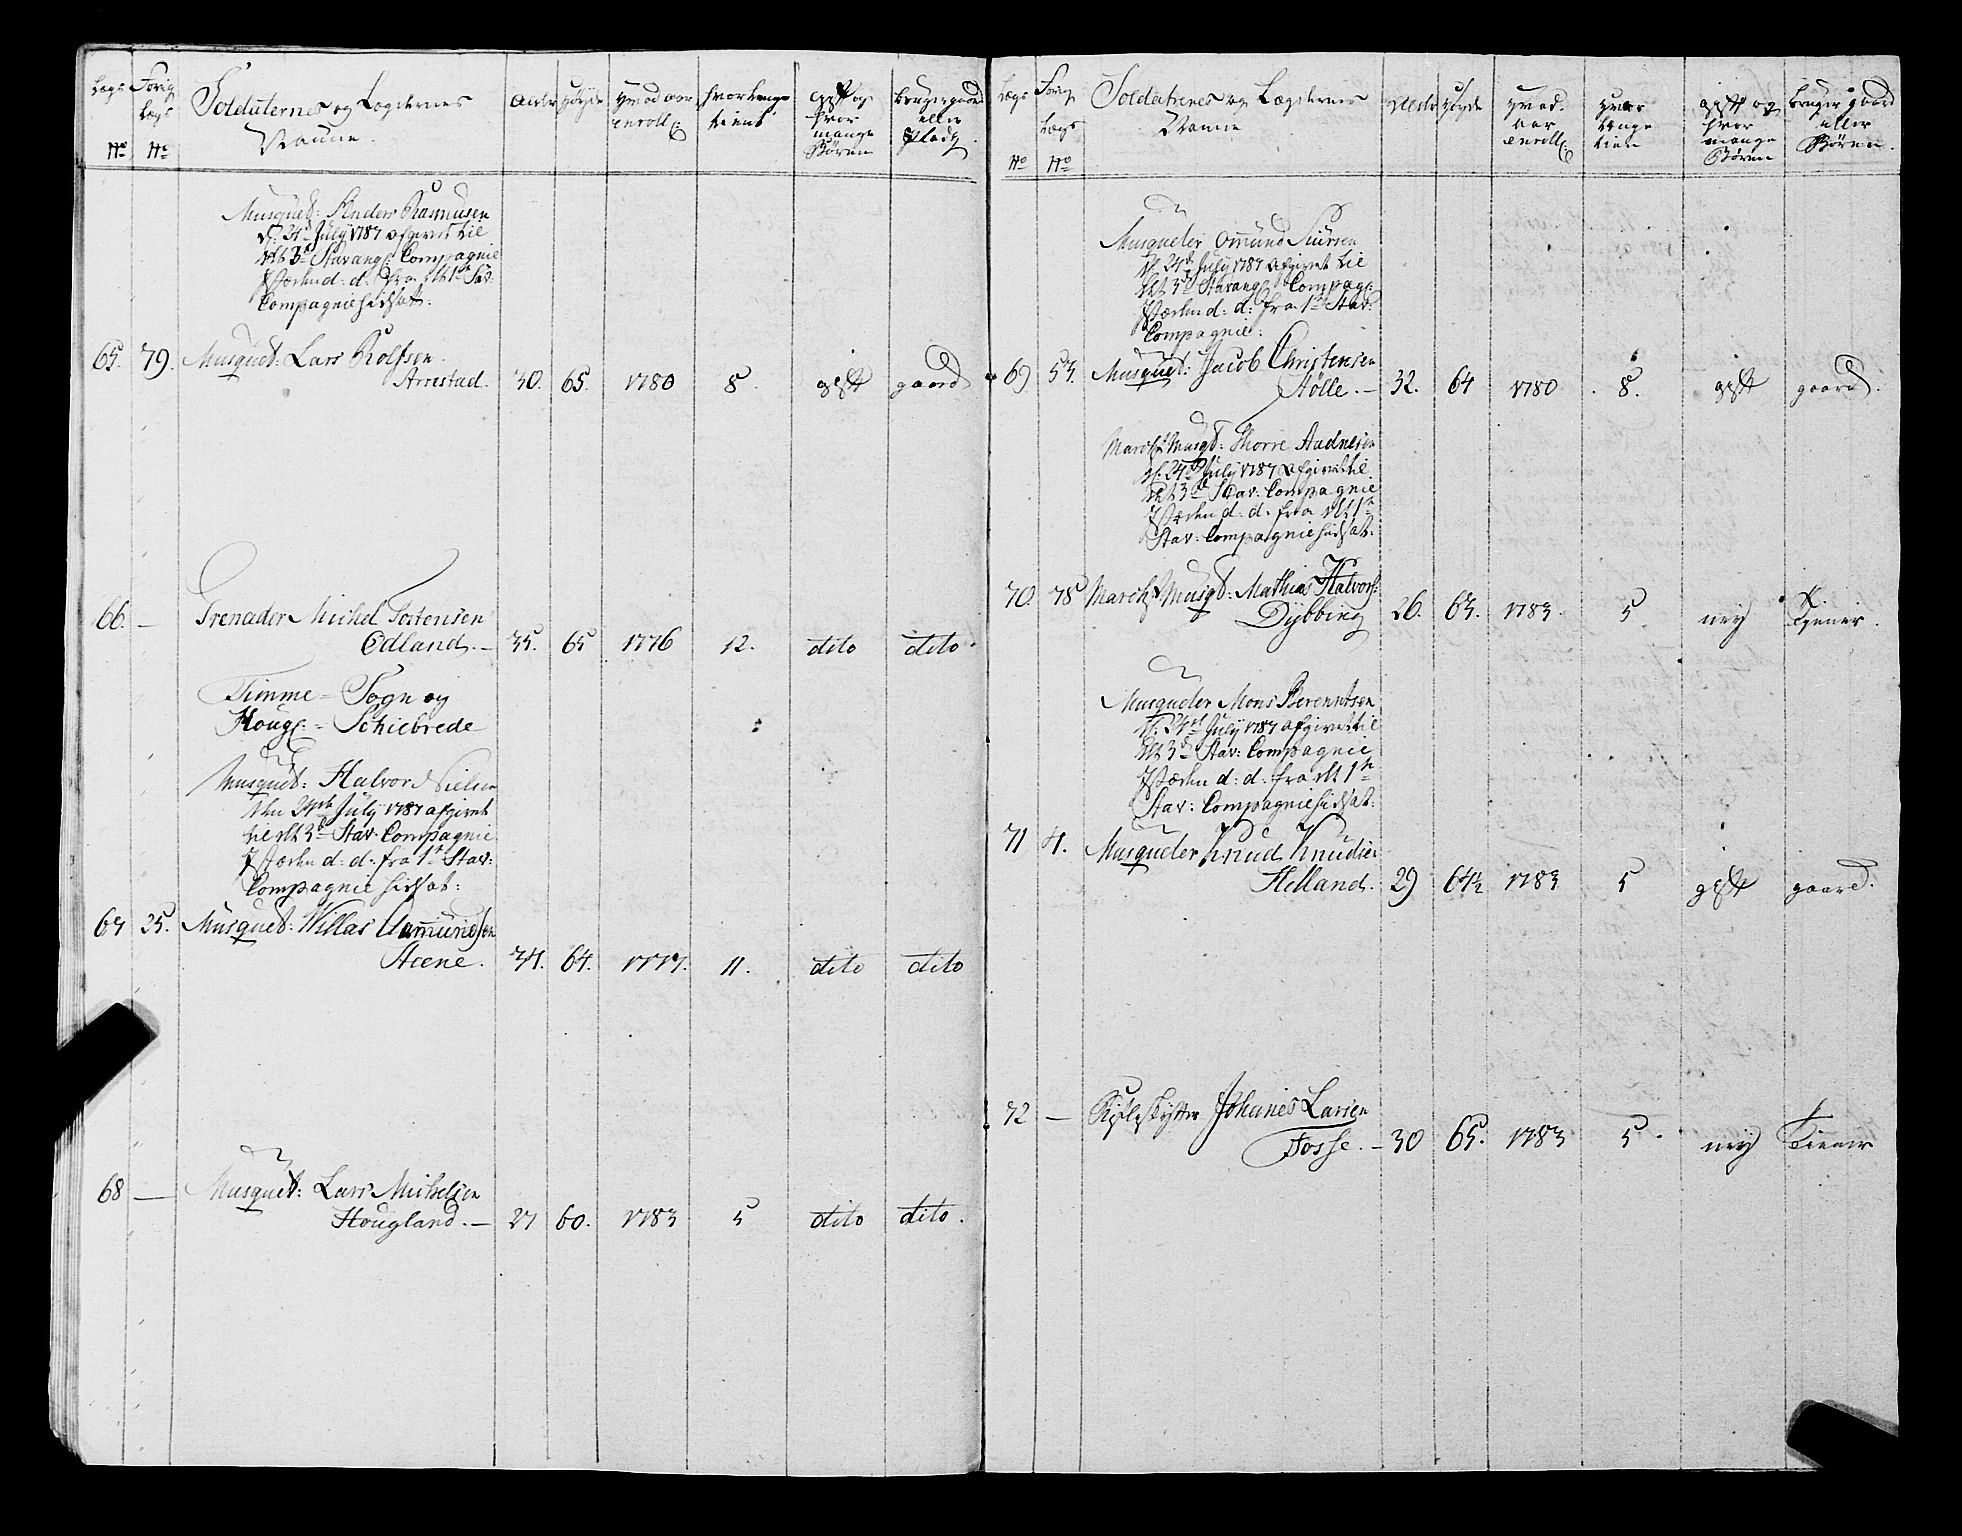 Lægs No
Forig Lægs No
Soldaternes og Lægdernes Navne.
Alder
Høyde
hvad aar enroll:
hvor længe tient
gift og hvor mange Børn
bruger gaard eller Plads.
Musquet: Anders Rasmusen
d. 24de July 1787 afgivet til
det 3de Stavang: Compagnie
Isteden d: d: fra det 1te Stav:
Compagnie hidsat:
65. 79. Musquet: Lars Rolfsen
Arrestad. 30. 65. 1780 8. gift gaard
66. — Grenader Michel Tostensen
Edland. — 35. 65 1776 12. dito dito.
Timme = Sogn og
Houg: = Schiebrede
Musquet: Halvor Nielsen
den 24de July 1787 afgivet
til det 3de Stav: Compagnie
Isteden d: d: fra 1te Stav:
Compagnie hidsat:
67 25. Musquet: Willas Aamundsen
Steene. 34. 64. 1777. 11. dito dito
68 — Musquet: Lars Michelsen
Hougland. — 27 60. 1783 5 dito dito.
Lægs No
Forig Lægs No
Soldaternes og Lægdernes Navne
Alder
Høyde
hvad aar enroll:
hvor længe tient
gift og hvor mange Børn
bruger gaard eller Børn.
Musqueter Omund Siursen
d. 24de July 1787 afgivet til
det 3de Stavang: Compag:
Isteden d: d: fra 1te Stav:
Compagnie:
69. 53. Musquet: Jacob Christensen
Stolle. — 32. 64 1780 8. gift gaard.
March: Musqt: Thorre Audnesen
d. 24de July 1787 afgivet til
det 3de Stav: Compagnie
Isteden d: d. fra det 1te
Stav: Compagnie hidsat:
70. 78 March: Musqt: Mathias Halvors:
Dybbing 26. 63. 1783. 5 ney tjener.
Musqueter Mons Berenntsen
d. 24de July 1787 afgivet til
det 3de Stav: Compagnie
Isteden d: d. fra det 1te
Stav: Compagnie hidsat:
71 4. Musqueter Knud Knudsen
Helland. 29 64½ 1783 5 gift gaard.
72 — Rifleskytter Johanes Larsen
Fosse. — 30 65. 1783 5. ney tiener